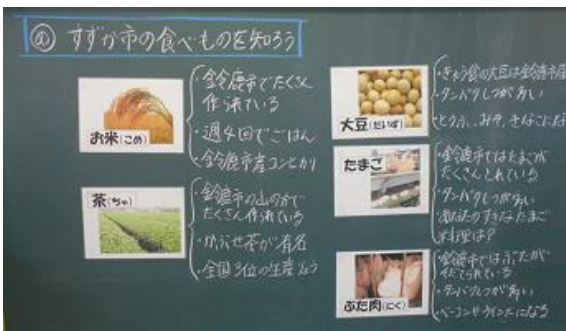 め すずか市の食べものを知ろう
お米(こめ)
・鈴鹿市でたくさん
作られている
・週4回でごはん
・鈴鹿市産コシヒカリ
茶(ちゃ)
・鈴鹿市の山の方で
たくさん作られている
・かぶせ茶が有名
・全国3位の生産りょう
大豆(だいず)
・きゅう食の大豆は鈴鹿市産
・タンパクしつが多い
・とうふ、みそ、きなこに
たまご
・鈴鹿市ではたまごが
たくさんとれている
・タンパクしつが多い
・あなたのすきなたまご
料理は?
ぶた肉(にく)
・鈴鹿市ではぶたが
そだてられている
・タンパクしつが多い
・ベーコンやウインナーになる